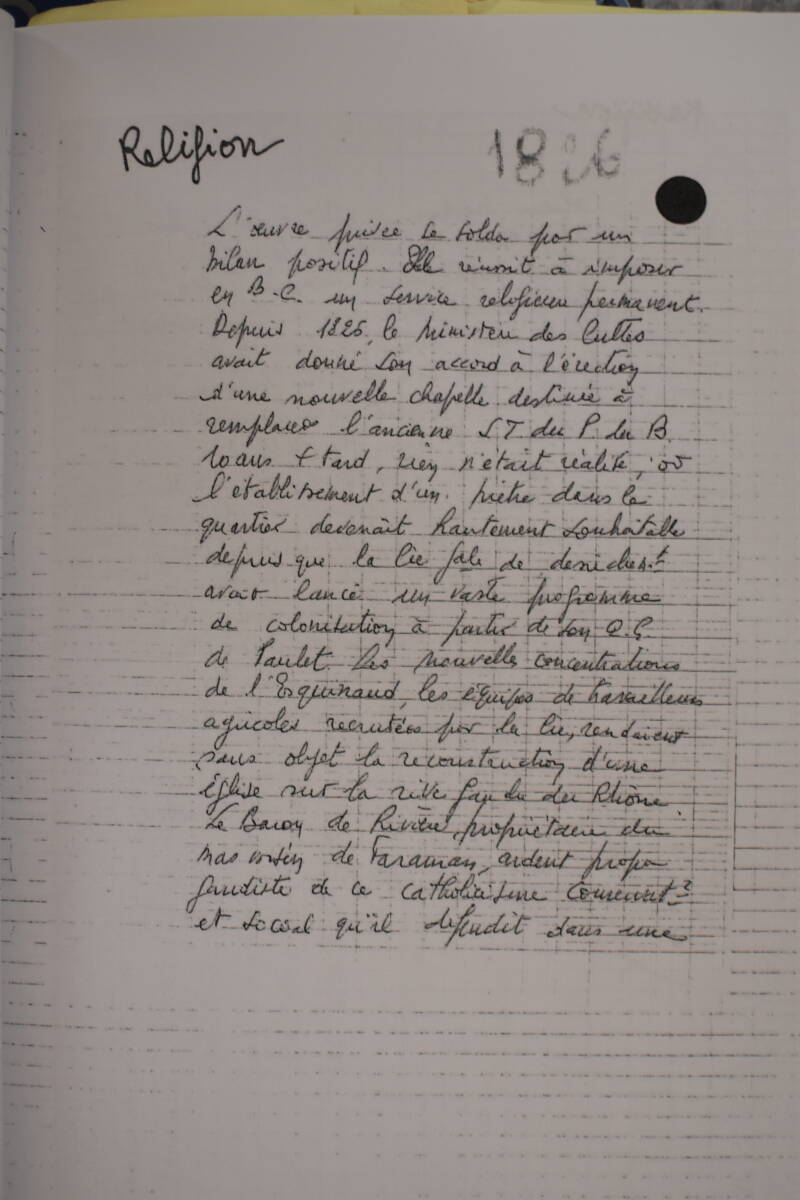 Religion
18 6
L'œuvre privée se solda par un
bilan positif. Elle réussit à imposer
en B.C. un service religieux permanent.
Depuis 1825, le Ministère des Cultes
avait donné son accord à l'érection
d'une nouvelle chapelle destinée à
remplacer l'ancienne S T du P. du B.
10 ans + tard, rien n'était réalité, or
l'établissement d'un prêtre dans le
quartier devenait hautement souhaitable
depuis que la Cie gale de dessichemt
avait lancé un vaste programme
de colonisation à partir de son Q.G.
de Paulet. Les nouvelles concentrations
de l'Esquinaud, les équipes de travailleurs
agricoles recrutées par la Cie, rendaient
sans objet la reconstruction d'une
église sur la rive gauche du Rhône
Le Baron de Rivière, propriétaire du
mas voisin de Faraman, ardent propa
gandiste de ce catholicisme
et social qu'il défendit dans une